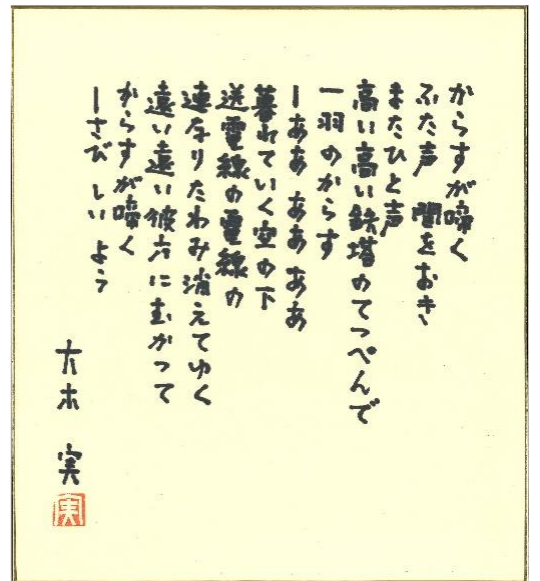 からすが啼く
ふた声 間をおき
またひと声
高い高い鉄塔のてっぺんで
一羽のからす
ーああ ああ ああ
暮れていく空の下
送電線の電線の
連なりたわみ消えてゆく
遠い遠い彼方に むかって
からすが啼く
ーさびしい よう
大木 実
実